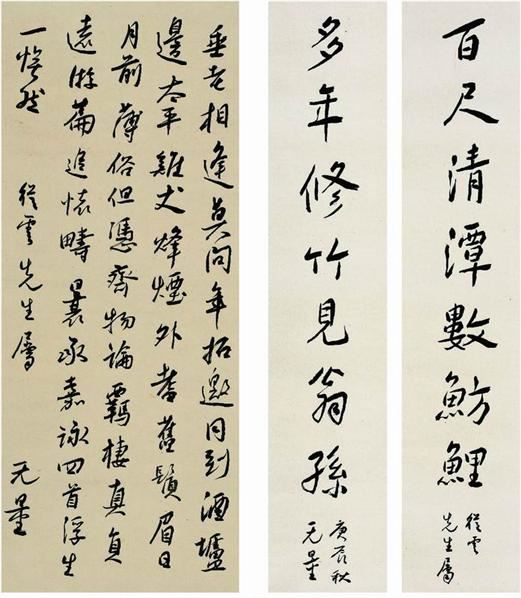 百尺清潭數魴鯉
從雲
先生屬
多年修竹見翁孫
庚辰秋
无量
垂老相逢莫問年招邀同到酒壚
邊太平雞犬烽煙外耆舊鬢眉日
月前薄俗但憑齊物論羈棲真負
遠游篇追懷疇曩承嘉詠回首浮生
一然 從雲先生屬 无量